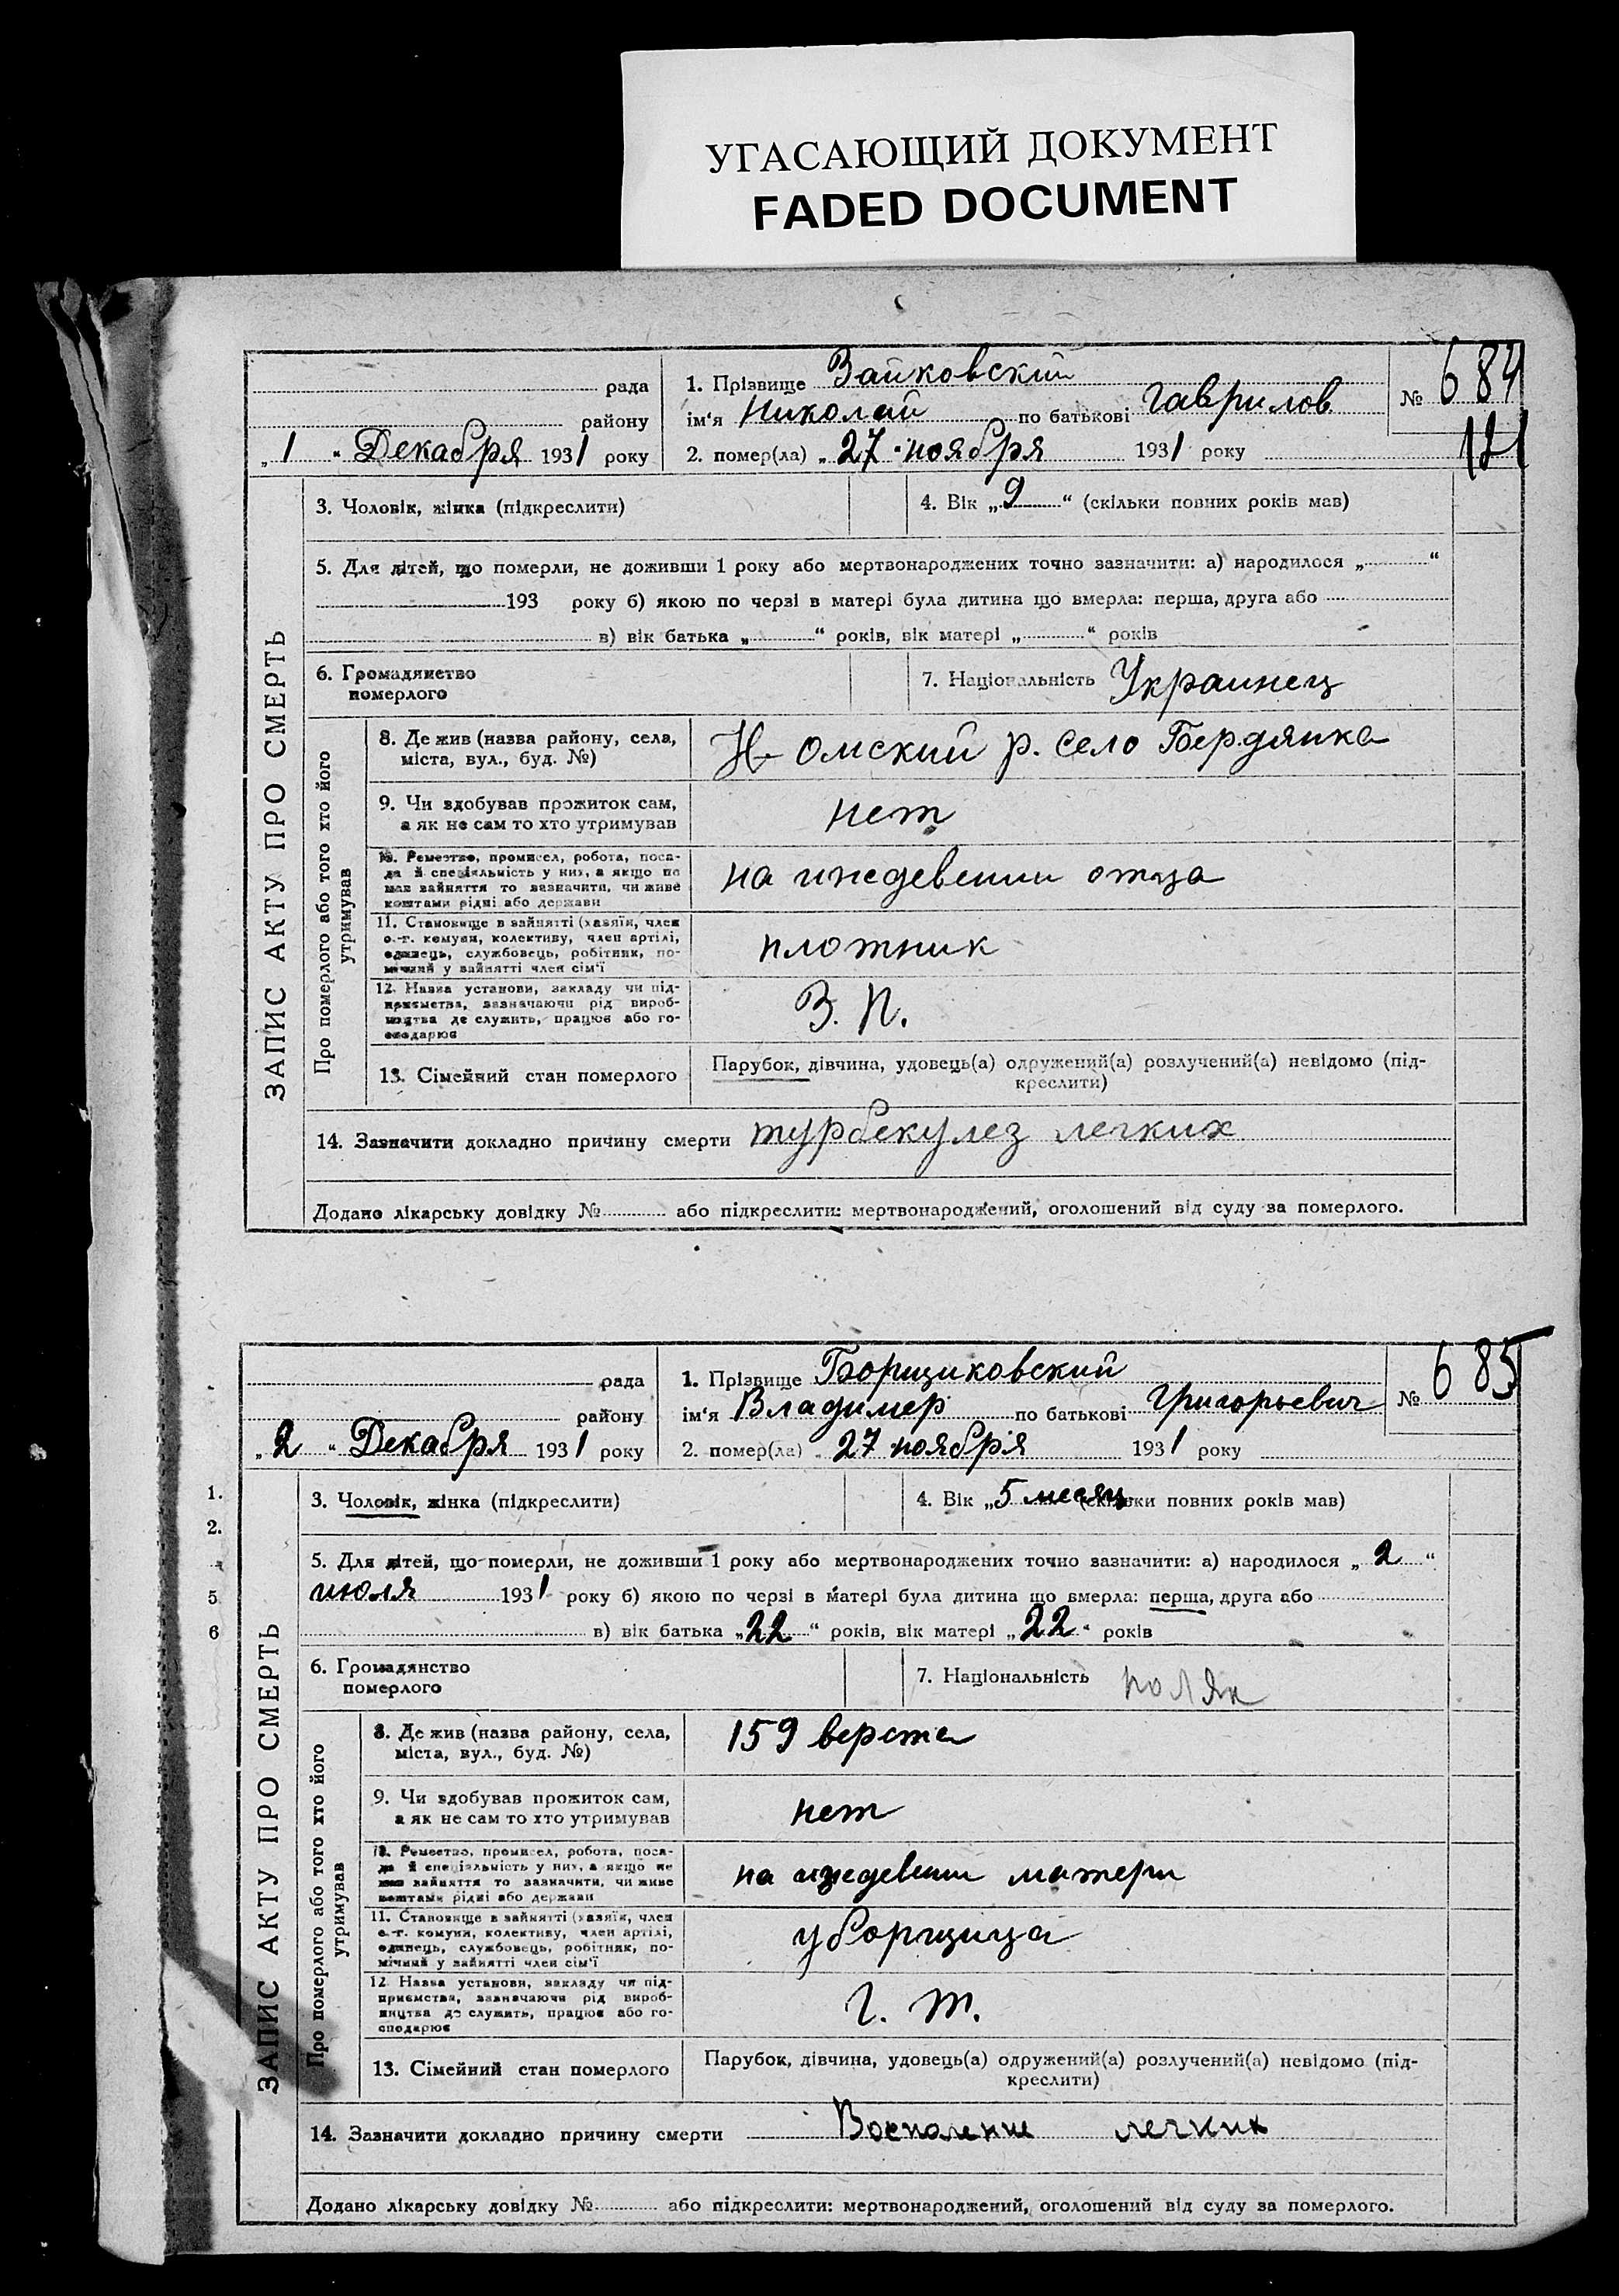 УГАСАЮЩИЙ ДОКУМЕНТ
FADED DOCUMENT
рада
1. Прізвище Зайковский
№ 684
району
ім‘я Николай по батькові Гаврилов
„1“ Декабря 1931 року
2. помер(ла) „27“ ноября 1931 року
ЗАПИС АКТУ ПРО СМЕРТЬ
3. Чоловік, жінка (підкреслити)
4. Вік „9“ (скільки повних років мав)
5. Для дітей, що померли, не доживши 1 року або мертвонароджених точно зазначити: а) народилося „ “
193 року б) якою по черзі в матері була дитина що вмерла: перша, друга або
в) вік батька „ “ років, вік матері „ “ років
6. Громадянство
померлого
7. Національність Украинец
Про померлого або того хто його
утримував
8. Де жив (назва району, села,
міста, вул., буд. №)
Н-Омский р. село Бердянка
9. Чи здобував прожиток сам,
а як не сам то хто утримував
нет
10. Ремество, промисел, робота, поса-
да й спеціяльність у них, а якщо не
мав зайняття то зазначити, чи живе
коштами рідні або держави
на иждевении отца
11. Становище в зайнятті (хазяїн, член
с.-г. комуни, колективу, член артілі,
одинець, службовець, робітник, по-
мічний у зайнятті член сім‘ї
плотник
12. Назва установи, закладу чи під-
приємства, зазначаючи рід вироб-
ництва де служить, працює або го-
сподарює
З. П.
13. Сімейний стан померлого
Парубок, дівчина, удовець(а) одружений(а) розлучений(а) невідомо (під-
креслити)
14. Зазначити докладно причину смерти турбекулез легких
Додано лікарську довідку № або підкреслити: мертвонароджений, оголошений від суду за померлого.
рада
1. Прізвище Борщиковский
№ 685
району
ім‘я Владимер по батькові Григорьевич
„2“ Декабря 1931 року
2. помер(ла) „27 ноября 1931 року
1.
2.
5
6
ЗАПИС АКТУ ПРО СМЕРТЬ
3. Чоловік, жінка (підкреслити)
4. Вік „5 месяц (скільки повних років мав)
5. Для дітей, що померли, не доживши 1 року або мертвонароджених точно зазначити: а) народилося „2“
июля 1931 року б) якою по черзі в матері була дитина що вмерла: перша, друга або
в) вік батька „22“ років, вік матері „22“ років
6. Громадянство
померлого
7. Національність поляк
Про померлого або того хто його
утримував
8. Де жив (назва району, села,
міста, вул., буд. №)
159 верста
9. Чи здобував прожиток сам,
а як не сам то хто утримував
нет
10. Ремество, промисел, робота, поса-
да й спеціяльність у них, а якщо не
мав зайняття то зазначити, чи живе
коштами рідні або держави
на иждевении матери
11. Становище в зайнятті (хазяїн, член
с.-г. комуни, колективу, член артілі,
одинець, службовець, робітник, по-
мічний у зайнятті член сім‘ї
уборщица
12. Назва установи, закладу чи під-
приємства, зазначаючи рід вироб-
ництва де служить, працює або го-
сподарює
Г. Т.
13. Сімейний стан померлого
Парубок, дівчина, удовець(а) одружений(а) розлучений(а) невідомо (під-
креслити)
14. Зазначити докладно причину смерти Воспаление легких
Додано лікарську довідку № або підкреслити: мертвонароджений, оголошений від суду за померлого.